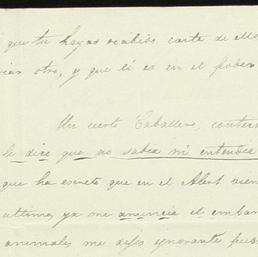 que tu hayas recibido carta de Ma
otro, y que li es en el poder
Un cierto Caballero,
le dice que no sabia ni entendia
que ha escrito que en el Abril
ultima, ya me anuncia el embar
animales me dejó ignorante pues